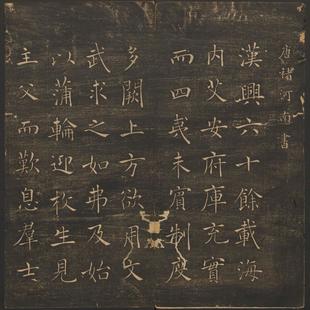 唐褚河南書
漢興六十餘載海
內艾安府庫充實
而四夷未賓制度
多闕上方欲用文
武求之如弗及始
以蒲輪迎枚生見
主父而歎息羣士